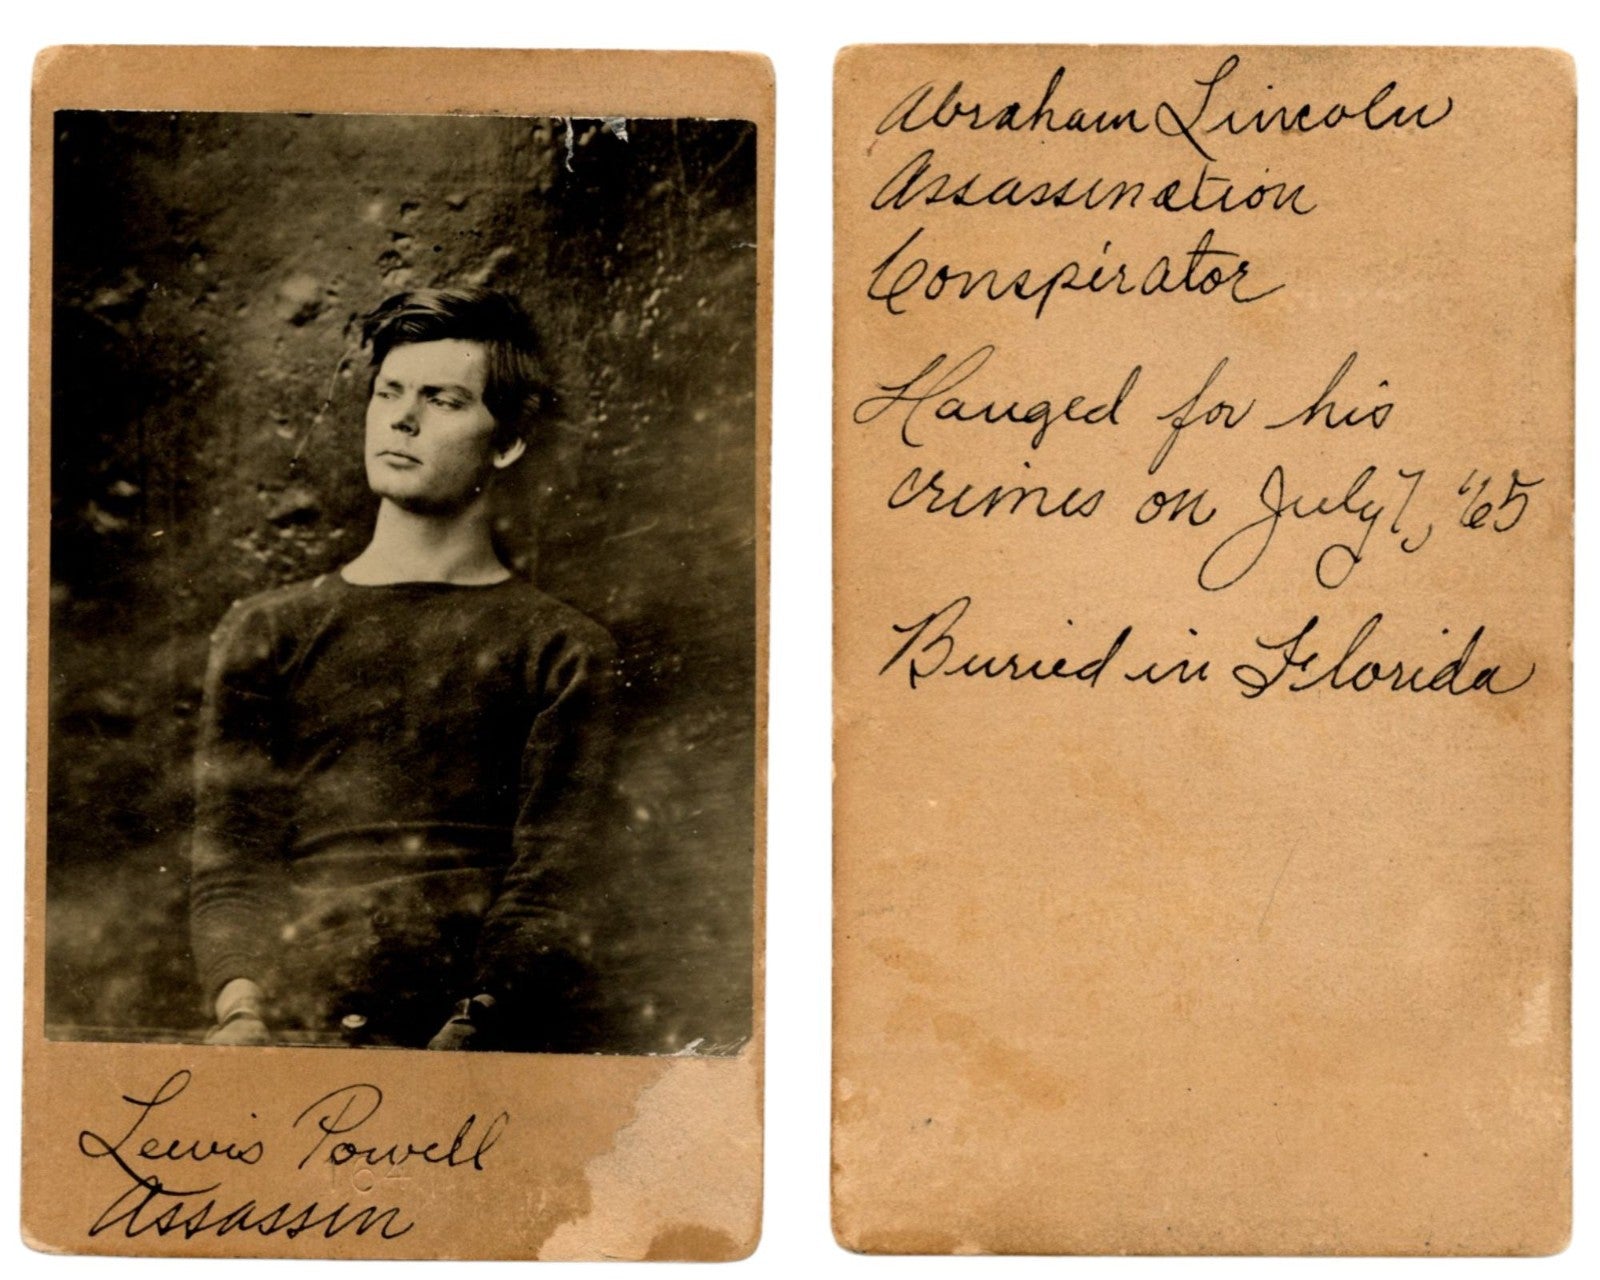 Lewis Powell
Assassin
Abraham Lincoln
Assassination
Conspirator
Hanged for his
crimes on July 7, '65
Buried in Florida